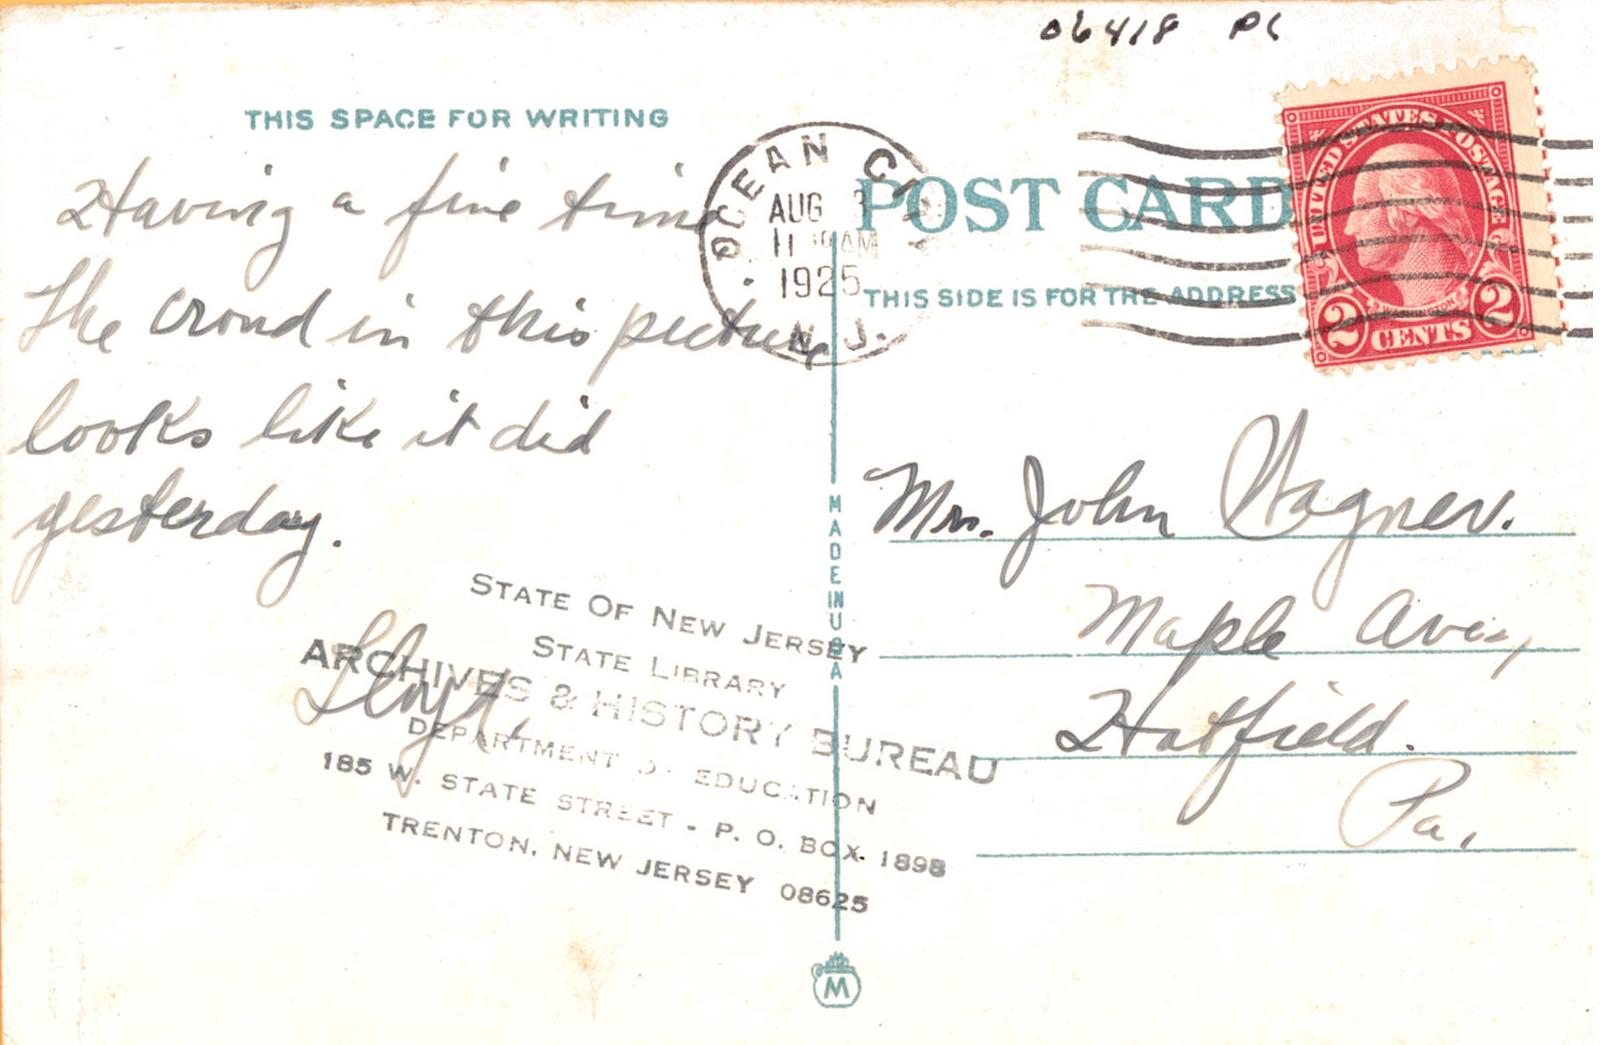 06418 PC
THIS SPACE FOR WRITING
Having a fine time
The crowd in this picture
looks like it did
yesterday.
Lloyd.
OCEAN CITY
AUG 3
11 30 AM
1925
N. J.
POST CARD
THIS SIDE IS FOR THE ADDRESS
UNITED STATES POSTAGE
WASHINGTON
2 CENTS 2
MADE IN USA
Mr. John Wagner.
Maple Ave.,
Hatfield.
Pa.
STATE OF NEW JERSEY
STATE LIBRARY
ARCHIVES & HISTORY BUREAU
DEPARTMENT OF EDUCATION
185 W. STATE STREET - P. O. BOX 1898
TRENTON, NEW JERSEY 08625
M